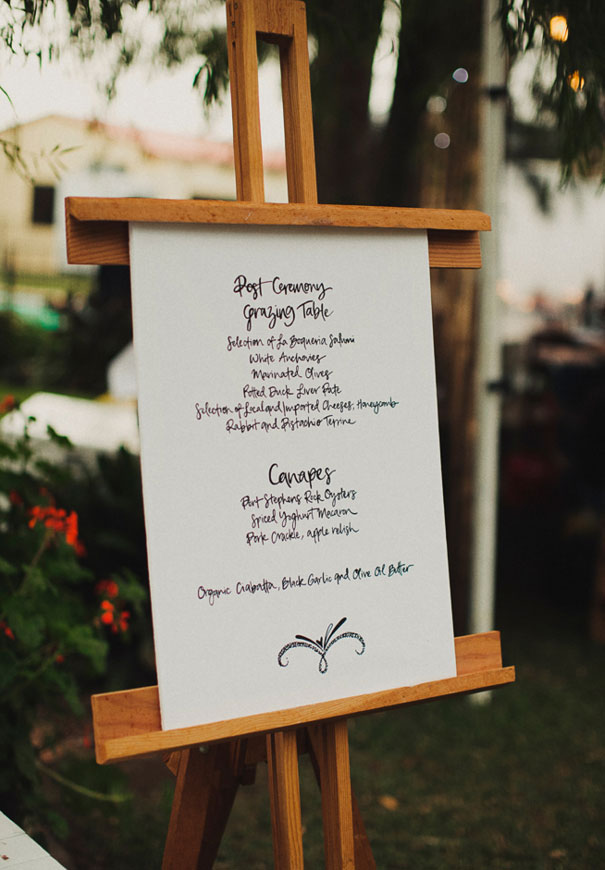 Post Ceremony
Grazing Table
Selection of La Boqueria Salumi
White Anchovies
Marinated Olives
Potted Duck Liver Pate
Selection of Local and Imported Cheeses, Honeycomb
Rabbit and Pistachio Terrine
Canapes
Port Stephens Rock Oysters
Spiced Yoghurt Macaron
Pork Crackle, apple relish
Organic Ciabatta, Black Garlic and Olive Oil Butter